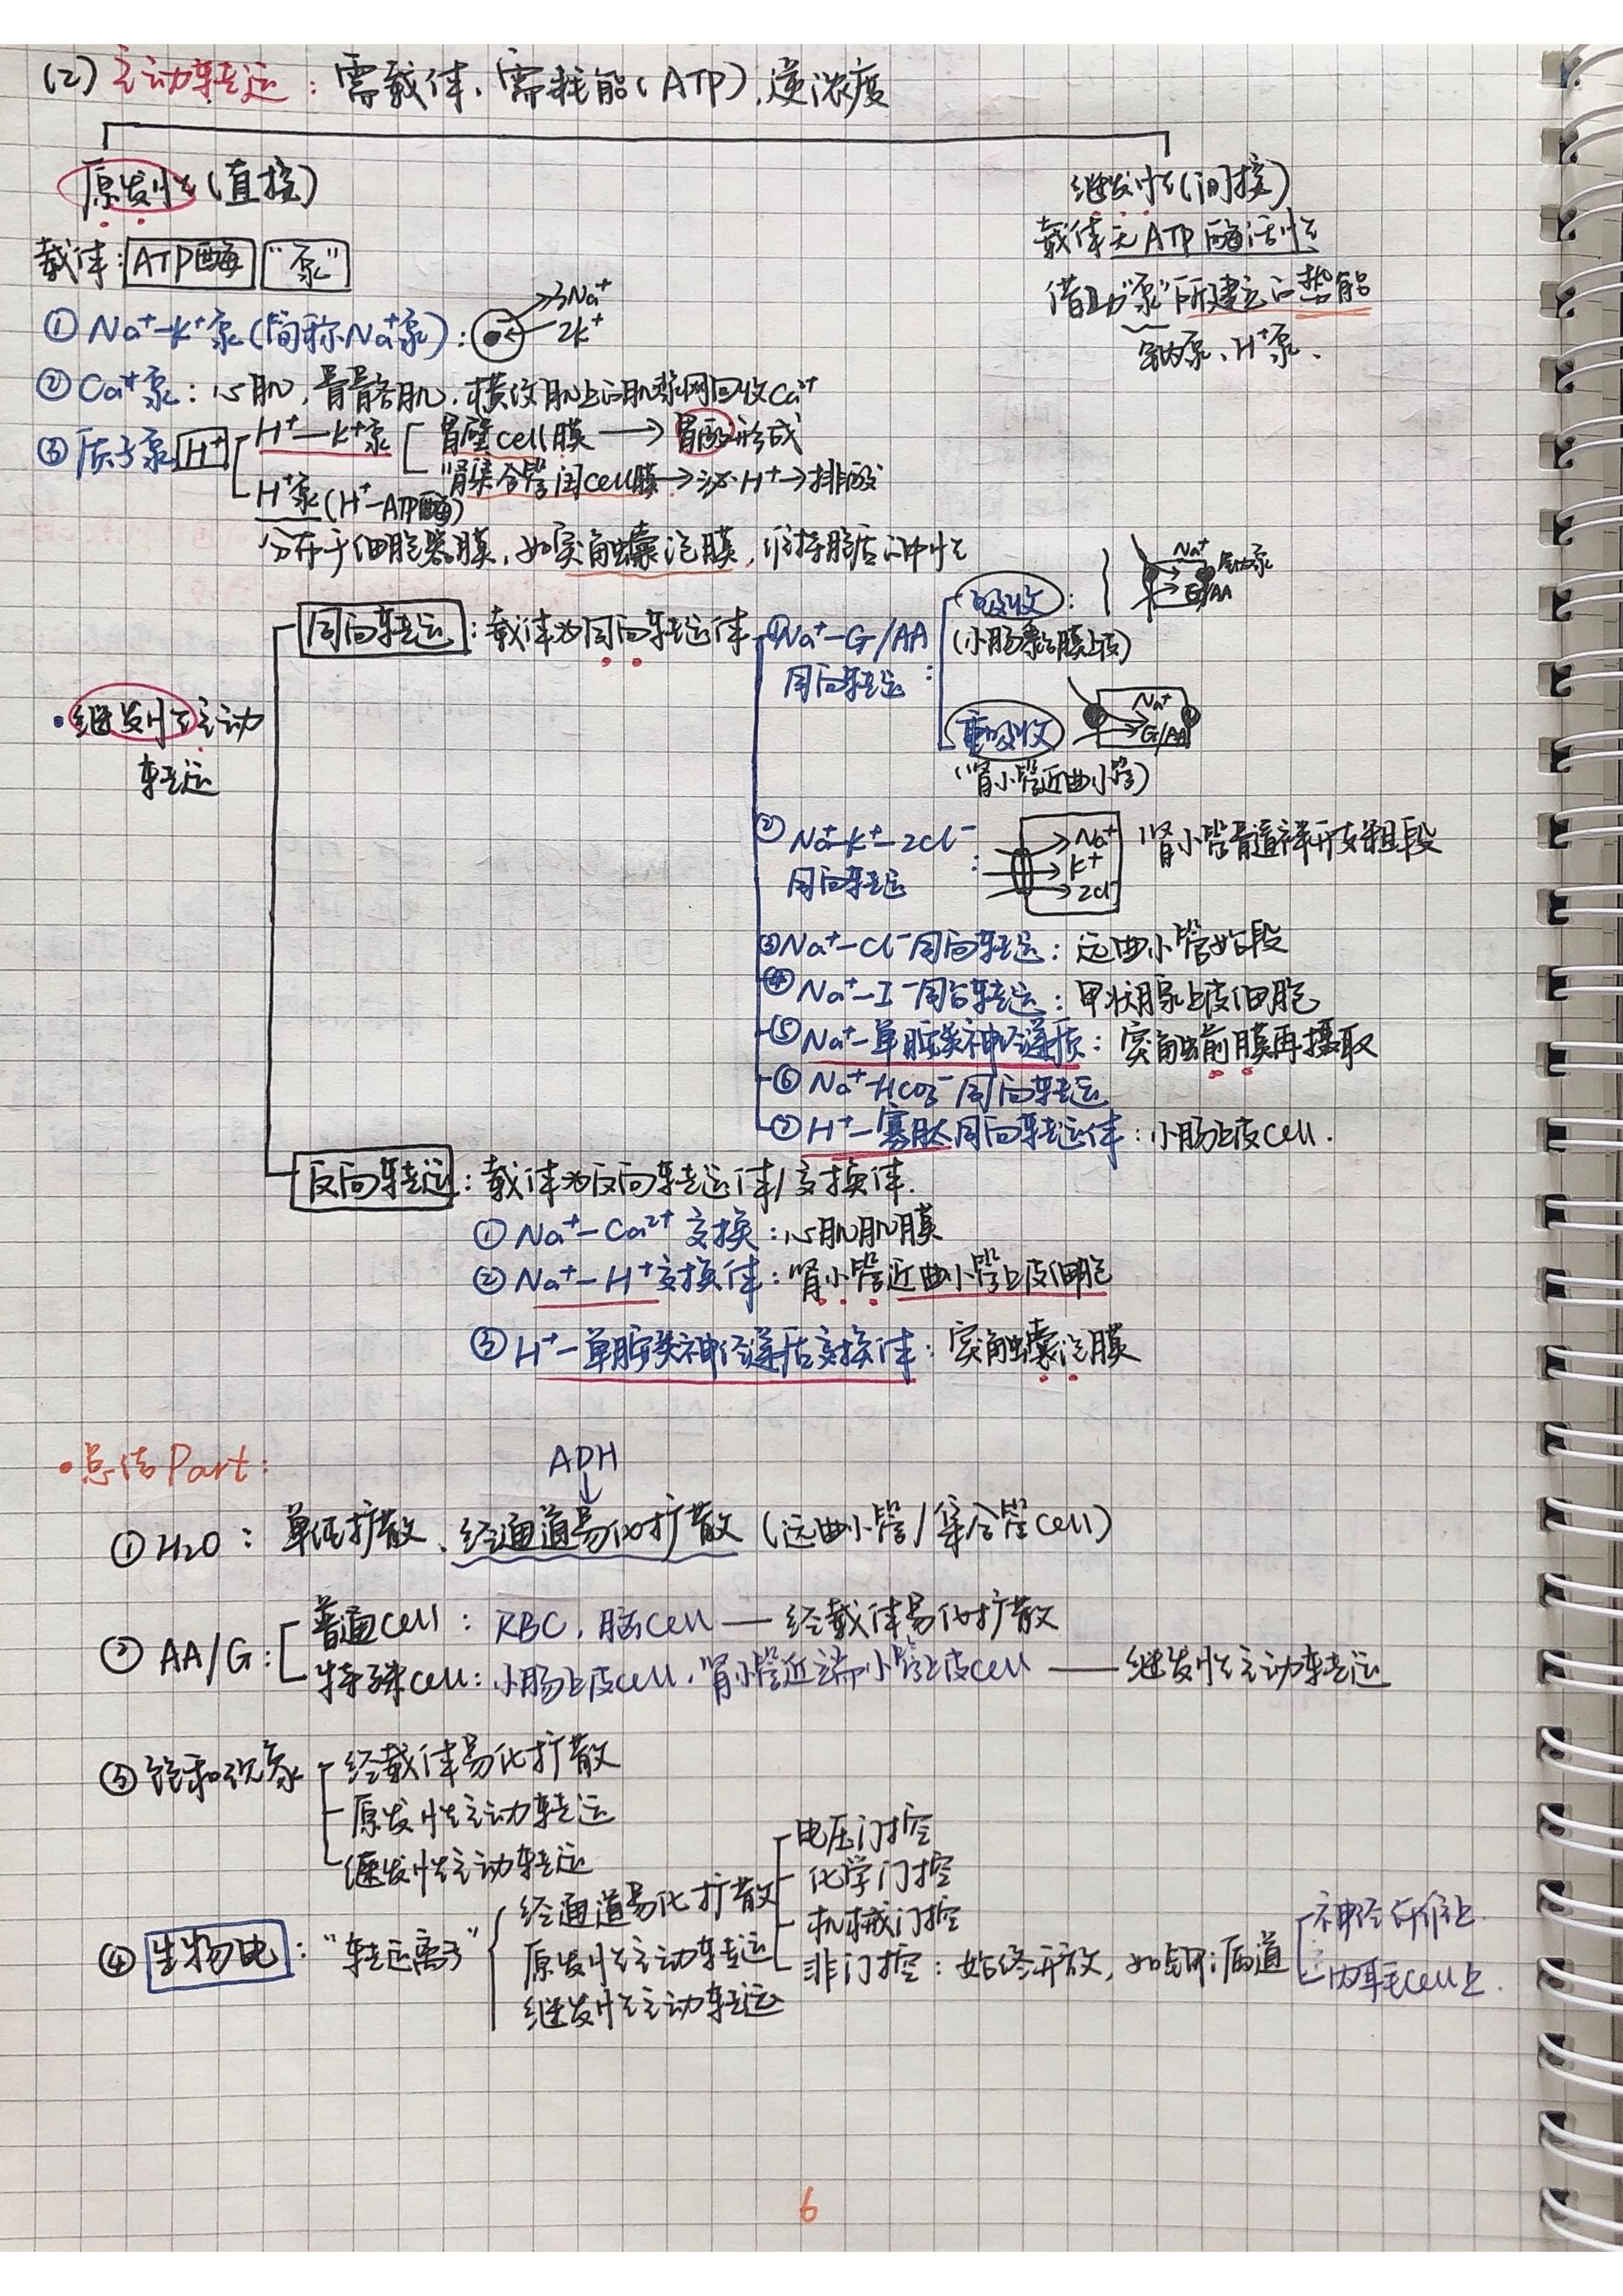 (2) 主动转运：需载体、需耗能(ATP)，逆浓度
原发性(直接)
继发性(间接)
载体无ATP酶活性
借助"泵"所建立的势能
钠泵、H⁺泵、
载体：ATP酶 "泵"
① Na⁺-K⁺泵(简称Na⁺泵)：
3Na⁺
2K⁺
② Ca²⁺泵：心肌，骨骼肌，横纹肌上的肌浆网回收Ca²⁺
③ 质子泵 H⁺
H⁺-K⁺泵
胃壁cell膜→胃酸形成
肾集合管闰cell膜→泌H⁺→排酸
H⁺泵(H⁺-ATP酶)
分布于细胞器膜，如突触囊泡膜，维持胞店的中性
·继发性主动转运
同向转运：载体为同向转运体
① Na⁺-G/AA同向转运：
吸收：
(小肠黏膜上皮)
Na⁺
G/AA
钠泵
重吸收
(肾小管近曲小管)
Na⁺
G/AA
② Na⁺-K⁺-2Cl⁻同向转运：
Na⁺
K⁺
2Cl⁻
肾小管髓袢升支粗段
③ Na⁺-Cl⁻同向转运：远曲小管始段
④ Na⁺-I⁻同向转运：甲状腺上皮细胞
⑤ Na⁺-单胺类神经递质：突触前膜再摄取
⑥ Na⁺-HCO₃⁻同向转运
⑦ H⁺-寡肽同向转运体：小肠上皮cell.
反向转运：载体为反向转运体/交换体.
① Na⁺-Ca²⁺交换：心肌肌膜
② Na⁺-H⁺交换体：肾小管近曲小管上皮细胞
③ H⁺-单胺类神经递质交换体：突触囊泡膜
·总结Part：
ADH
① H₂O：单纯扩散、经通道易化扩散(远曲小管/集合管cell)
② AA/G：
普通cell：RBC，脑cell——经载体易化扩散
特殊cell：小肠上皮cell，肾小管近端小管上皮cell——继发性主动转运
③ 饱和现象
经载体易化扩散
原发性主动转运
继发性主动转运
④ 生物电："转运离子"
经通道易化扩散
电压门控
化学门控
机械门控
非门控：始终开放，如钾漏通道
神经纤维上.
内耳毛cell上.
原发性主动转运
继发性主动转运
6